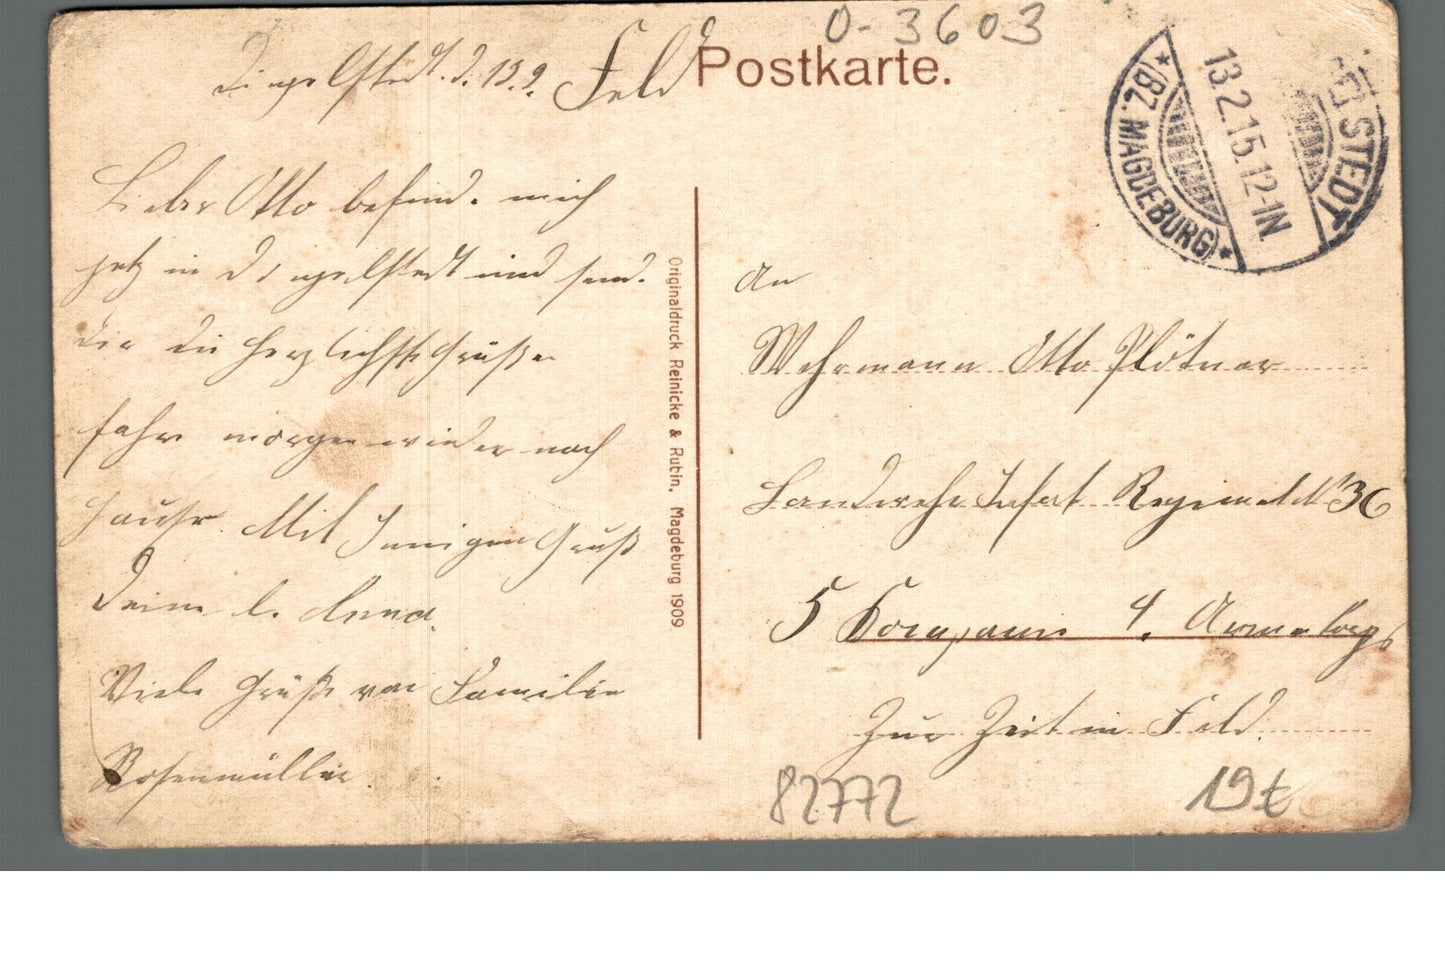 0-3603
Dingelstedt. d. 13.2. Feld
Postkarte.
STEDT
*(BZ. MAGDEBURG)*
13.2.15.12-1N.
Lieber Otto befind. mich
jetz in Dingelstedt und send.
dir die herzlichste Grüße
fahre morgen wieder nach
Hause. Mit Innigen Gruß
Deine l. Anna.
Viele Grüße von Familie
Rosenmüller
Originaldruck Reinicke & Rubin, Magdeburg 1909
An
Wehrmann Otto Plötner
Landwehr Infat Regiment 36
5 Kompanie 4. Armekorps
Zur Zeit in Feld.
82772
19t